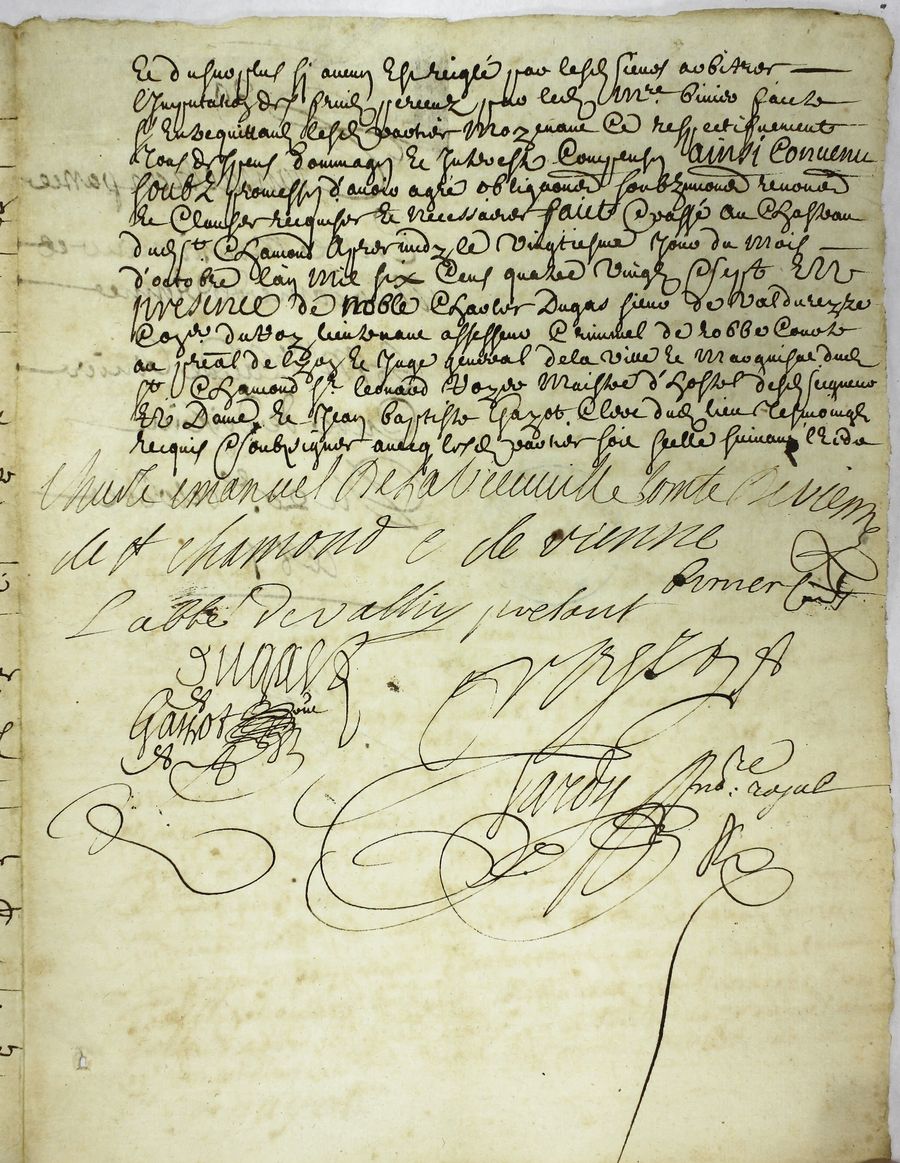 Et du surplus sy aucun est reiglé par lesd sieurs arbitres
l'imputation des fruits perceuz par led Mre Simier faicte
s'entrequittant lesd parties moyenant ce respectivement
Tous despens dommages et interests compensés ainsi convenu
soubz promesses d'avoir agré obligations soubzmissions renonciations
et clauses requises et necessaires faict et passé au chasteau
dud St Chamond apres midy le vingtiesme jour du mois
d'octobre l'an mil six cens quatre vingt et sept en
presence de noble Charles Dugas sieur de Valdurezze
Coner du Roy lieutenant assesseur criminel de robbe courte
au pnal de Lyon et Juge general de la ville et Marquisat dud
St Chamond Sr Leonard maistre d'hostel desd seigneur
et Dame et Jean baptiste Gayot clerc dud lieu tesmoingts
requis et soubsignes avecq lesd parties soit scellé suivant l'Edit
Charle emanuel De La Vieuville Comte De vienne
de st chamond c de vienne
L'abbé De present
Dugas
Gayot
Tardy no.re royal